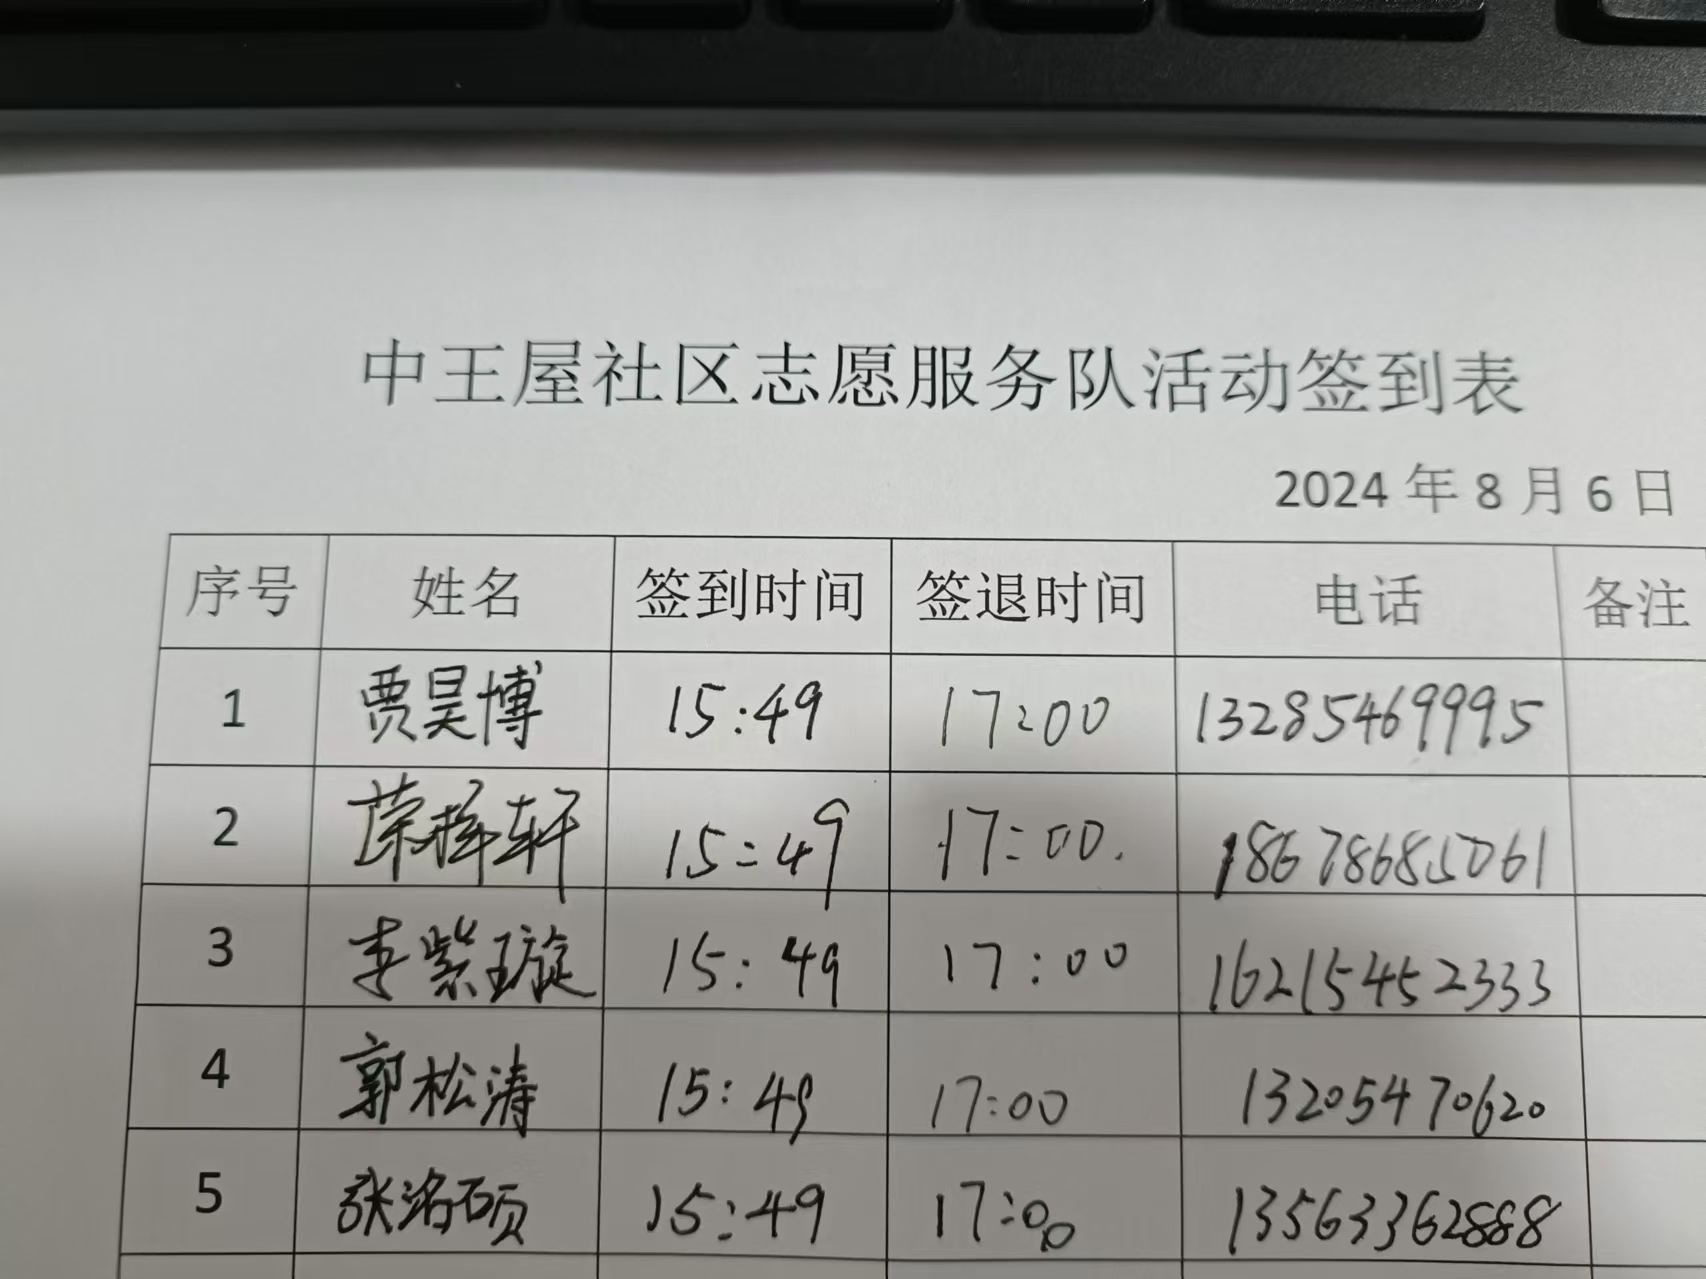 中王屋社区志愿服务队活动签到表
2024 年 8 月 6 日
序号 姓名 签到时间 签退时间 电话 备注
1 贾昊博 15:49 17:00 13285469995
2 荣梓轩 15:49 17:00. 18678685061
3 李紫璇 15:49 17:00 16215452333
4 郭松涛 15:49 17:00 13205470620
5 张洺硕 15:49 17:00 13563362888